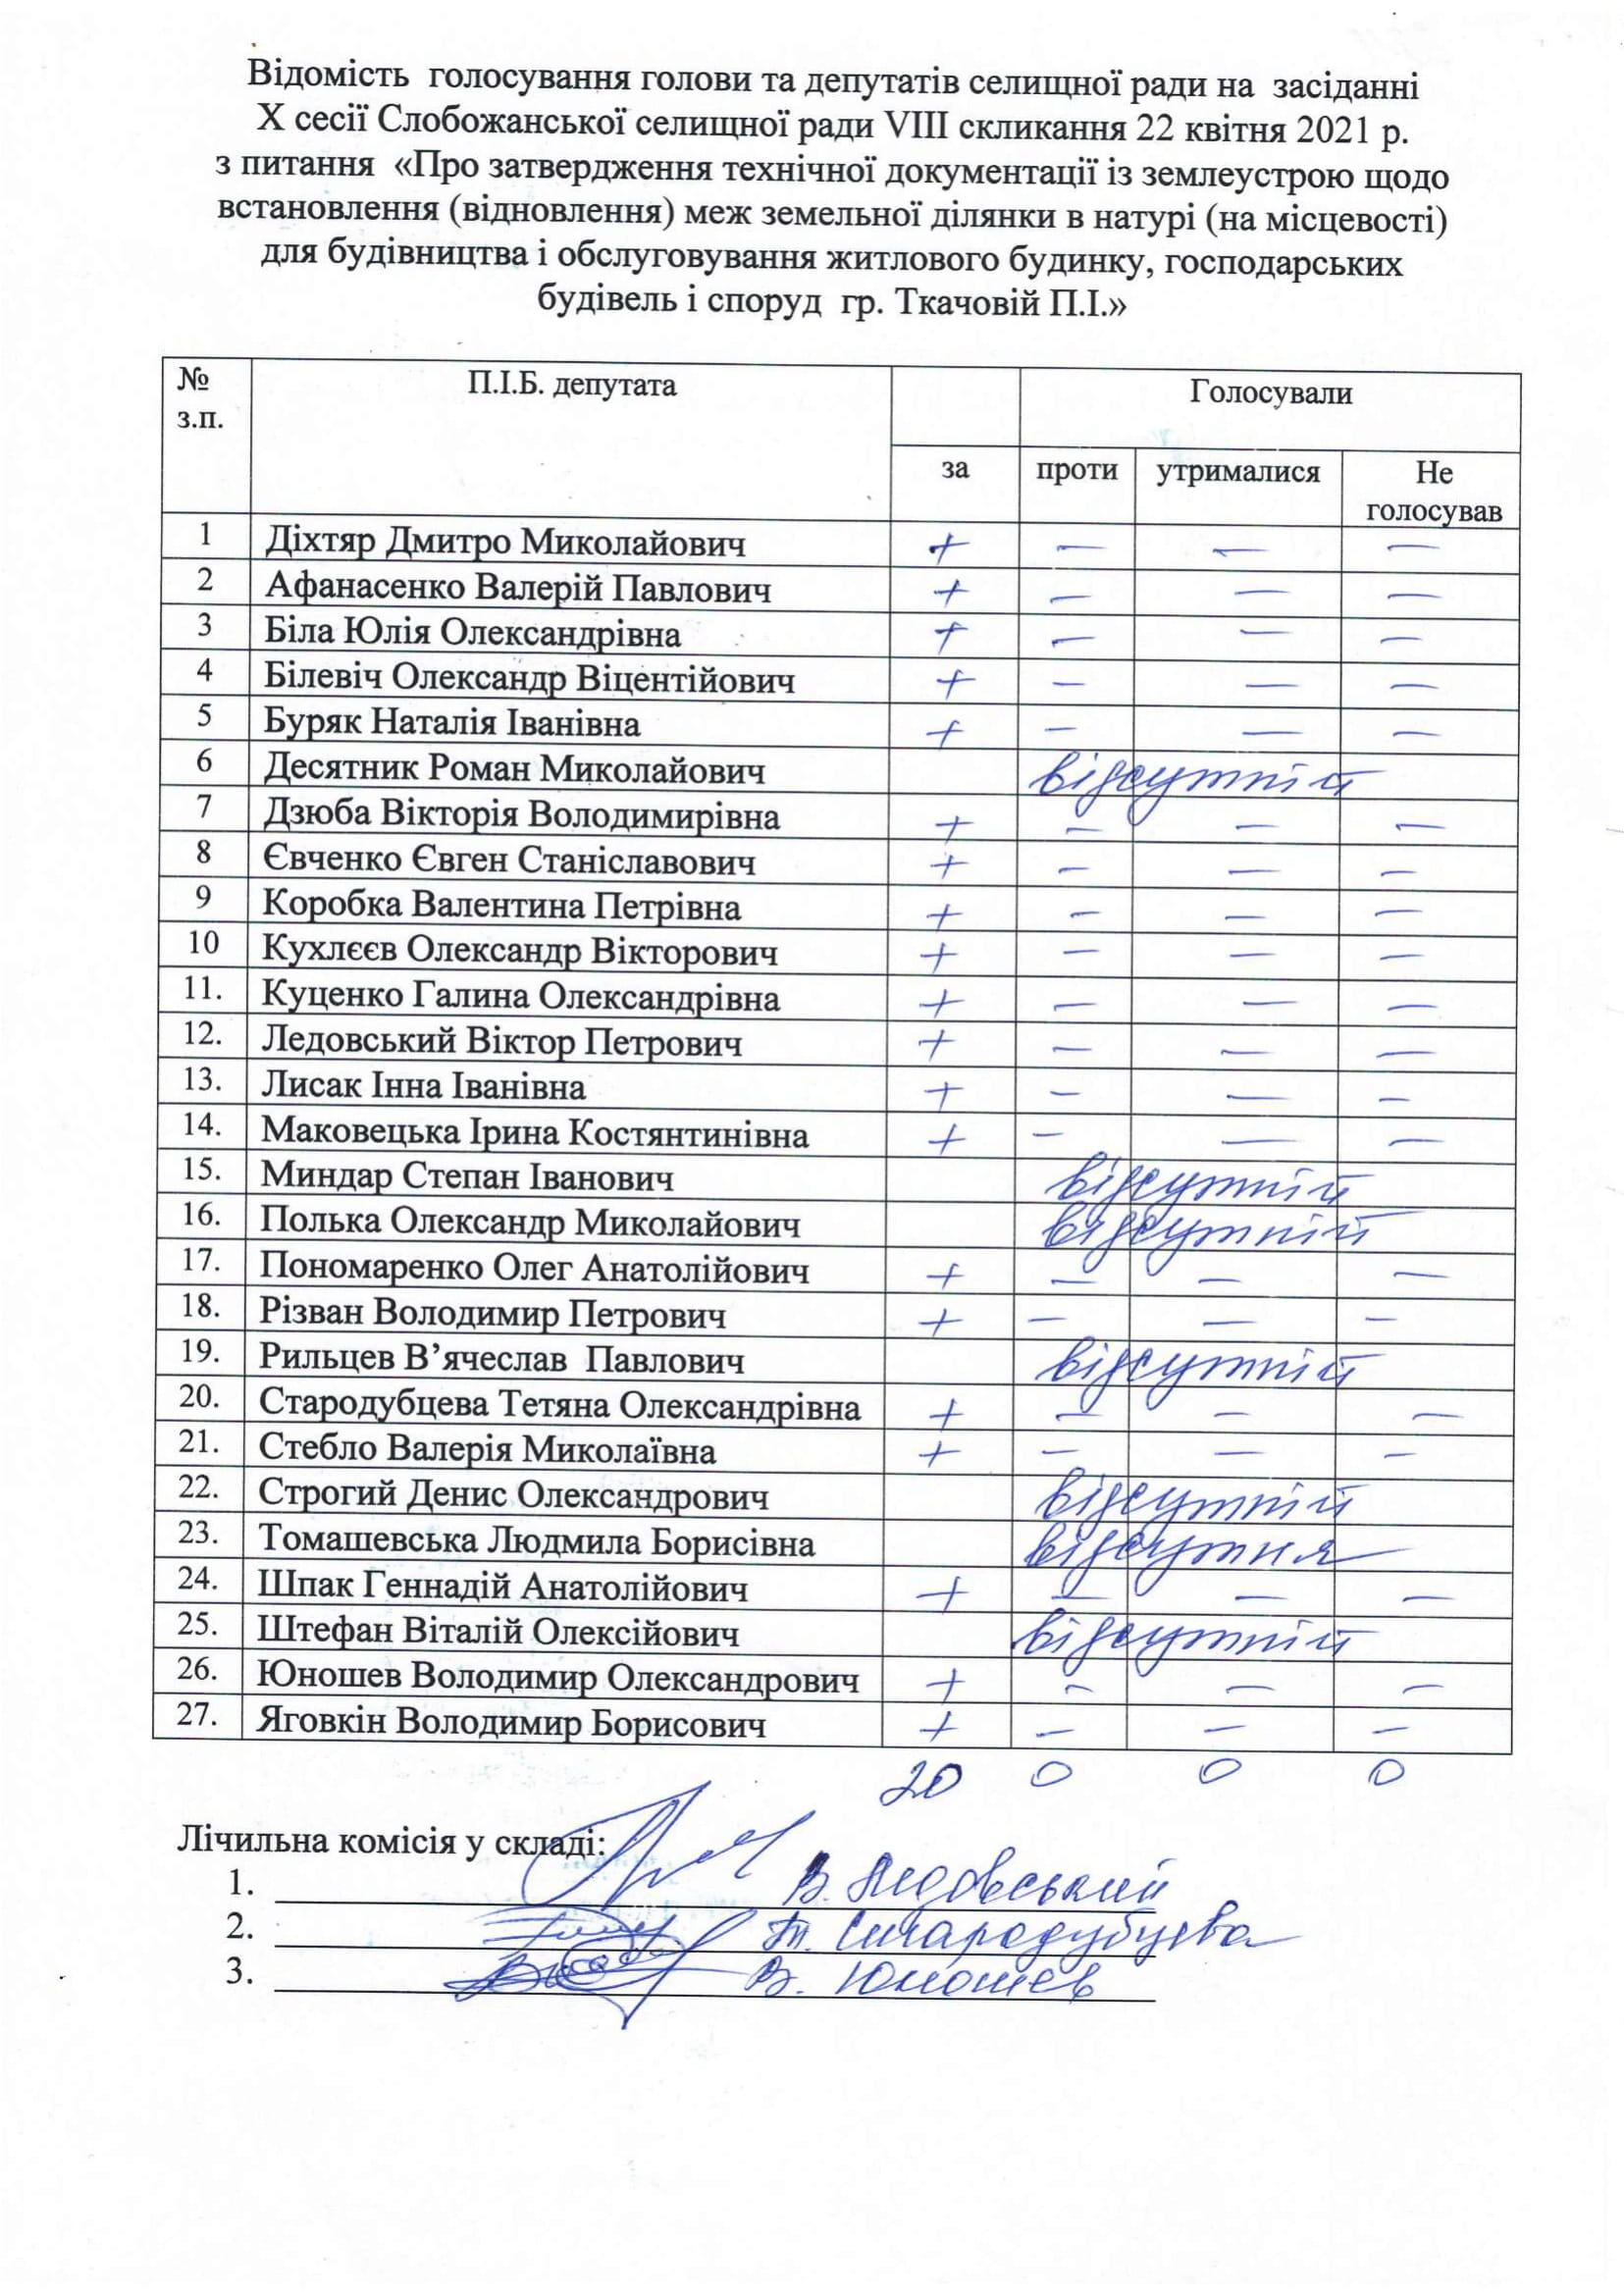 Відомість голосування голови та депутатів селищної ради на засіданні
Х сесії Слобожанської селищної ради VIII скликання 22 квітня 2021 р.
з питання «Про затвердження технічної документації із землеустрою щодо
встановлення (відновлення) меж земельної ділянки в натурі (на місцевості)
для будівництва і обслуговування житлового будинку, господарських
будівель і споруд гр. Ткачовій П.І.»
№ з.п. П.І.Б. депутата Голосували
за проти утрималися Не голосував
1 Діхтяр Дмитро Миколайович + – – –
2 Афанасенко Валерій Павлович + – – –
3 Біла Юлія Олександрівна + – – –
4 Білевіч Олександр Віцентійович + – – –
5 Буряк Наталія Іванівна + – – –
6 Десятник Роман Миколайович відсутній
7 Дзюба Вікторія Володимирівна + – – –
8 Євченко Євген Станіславович + – – –
9 Коробка Валентина Петрівна + – – –
10 Кухлєєв Олександр Вікторович + – – –
11. Куценко Галина Олександрівна + – – –
12. Ледовський Віктор Петрович + – – –
13. Лисак Інна Іванівна + – – –
14. Маковецька Ірина Костянтинівна + – – –
15. Миндар Степан Іванович відсутній
16. Полька Олександр Миколайович відсутній
17. Пономаренко Олег Анатолійович + – – –
18. Різван Володимир Петрович + – – –
19. Рильцев В’ячеслав Павлович відсутній
20. Стародубцева Тетяна Олександрівна + – – –
21. Стебло Валерія Миколаївна + – – –
22. Строгий Денис Олександрович відсутній
23. Томашевська Людмила Борисівна відсутня
24. Шпак Геннадій Анатолійович + – – –
25. Штефан Віталій Олексійович відсутній
26. Юношев Володимир Олександрович + – – –
27. Яговкін Володимир Борисович + – – –
20 0 0 0
Лічильна комісія у складі:
1. В. Ледовський
2. Т. Стародубцева
3. В. Юношев